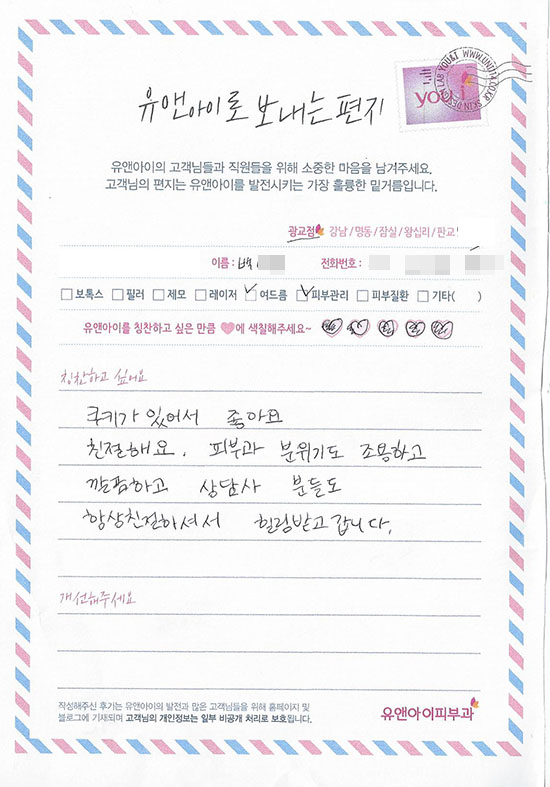 YOU&I WWW.UNI114.CO.KR SKIN DESIGN LAB
you
유앤아이로 보내는 편지
유앤아이의 고객님들과 직원들을 위해 소중한 마음을 남겨주세요.
고객님의 편지는 유앤아이를 발전시키는 가장 훌륭한 밑거름입니다.
광교점 강남 / 명동 / 잠실 / 왕십리 / 판교
이름 : 전화번호 :
보톡스 필러 제모 레이저 여드름 피부관리 피부질환 기타( )
유앤아이를 칭찬하고 싶은 만큼 에 색칠해주세요~
칭찬하고 싶어요
쿠키가 있어서 좋아요
친절해요. 피부과 분위기도 조용하고
깔끔하고 상담사 분들도
항상친절하셔서 힐링받고 갑니다.
개선해주세요
작성해주신 후기는 유앤아이의 발전과 많은 고객님들을 위해 홈페이지 및
블로그에 기재되며 고객님의 개인정보는 일부 비공개 처리로 보호됩니다.
유앤아이피부과